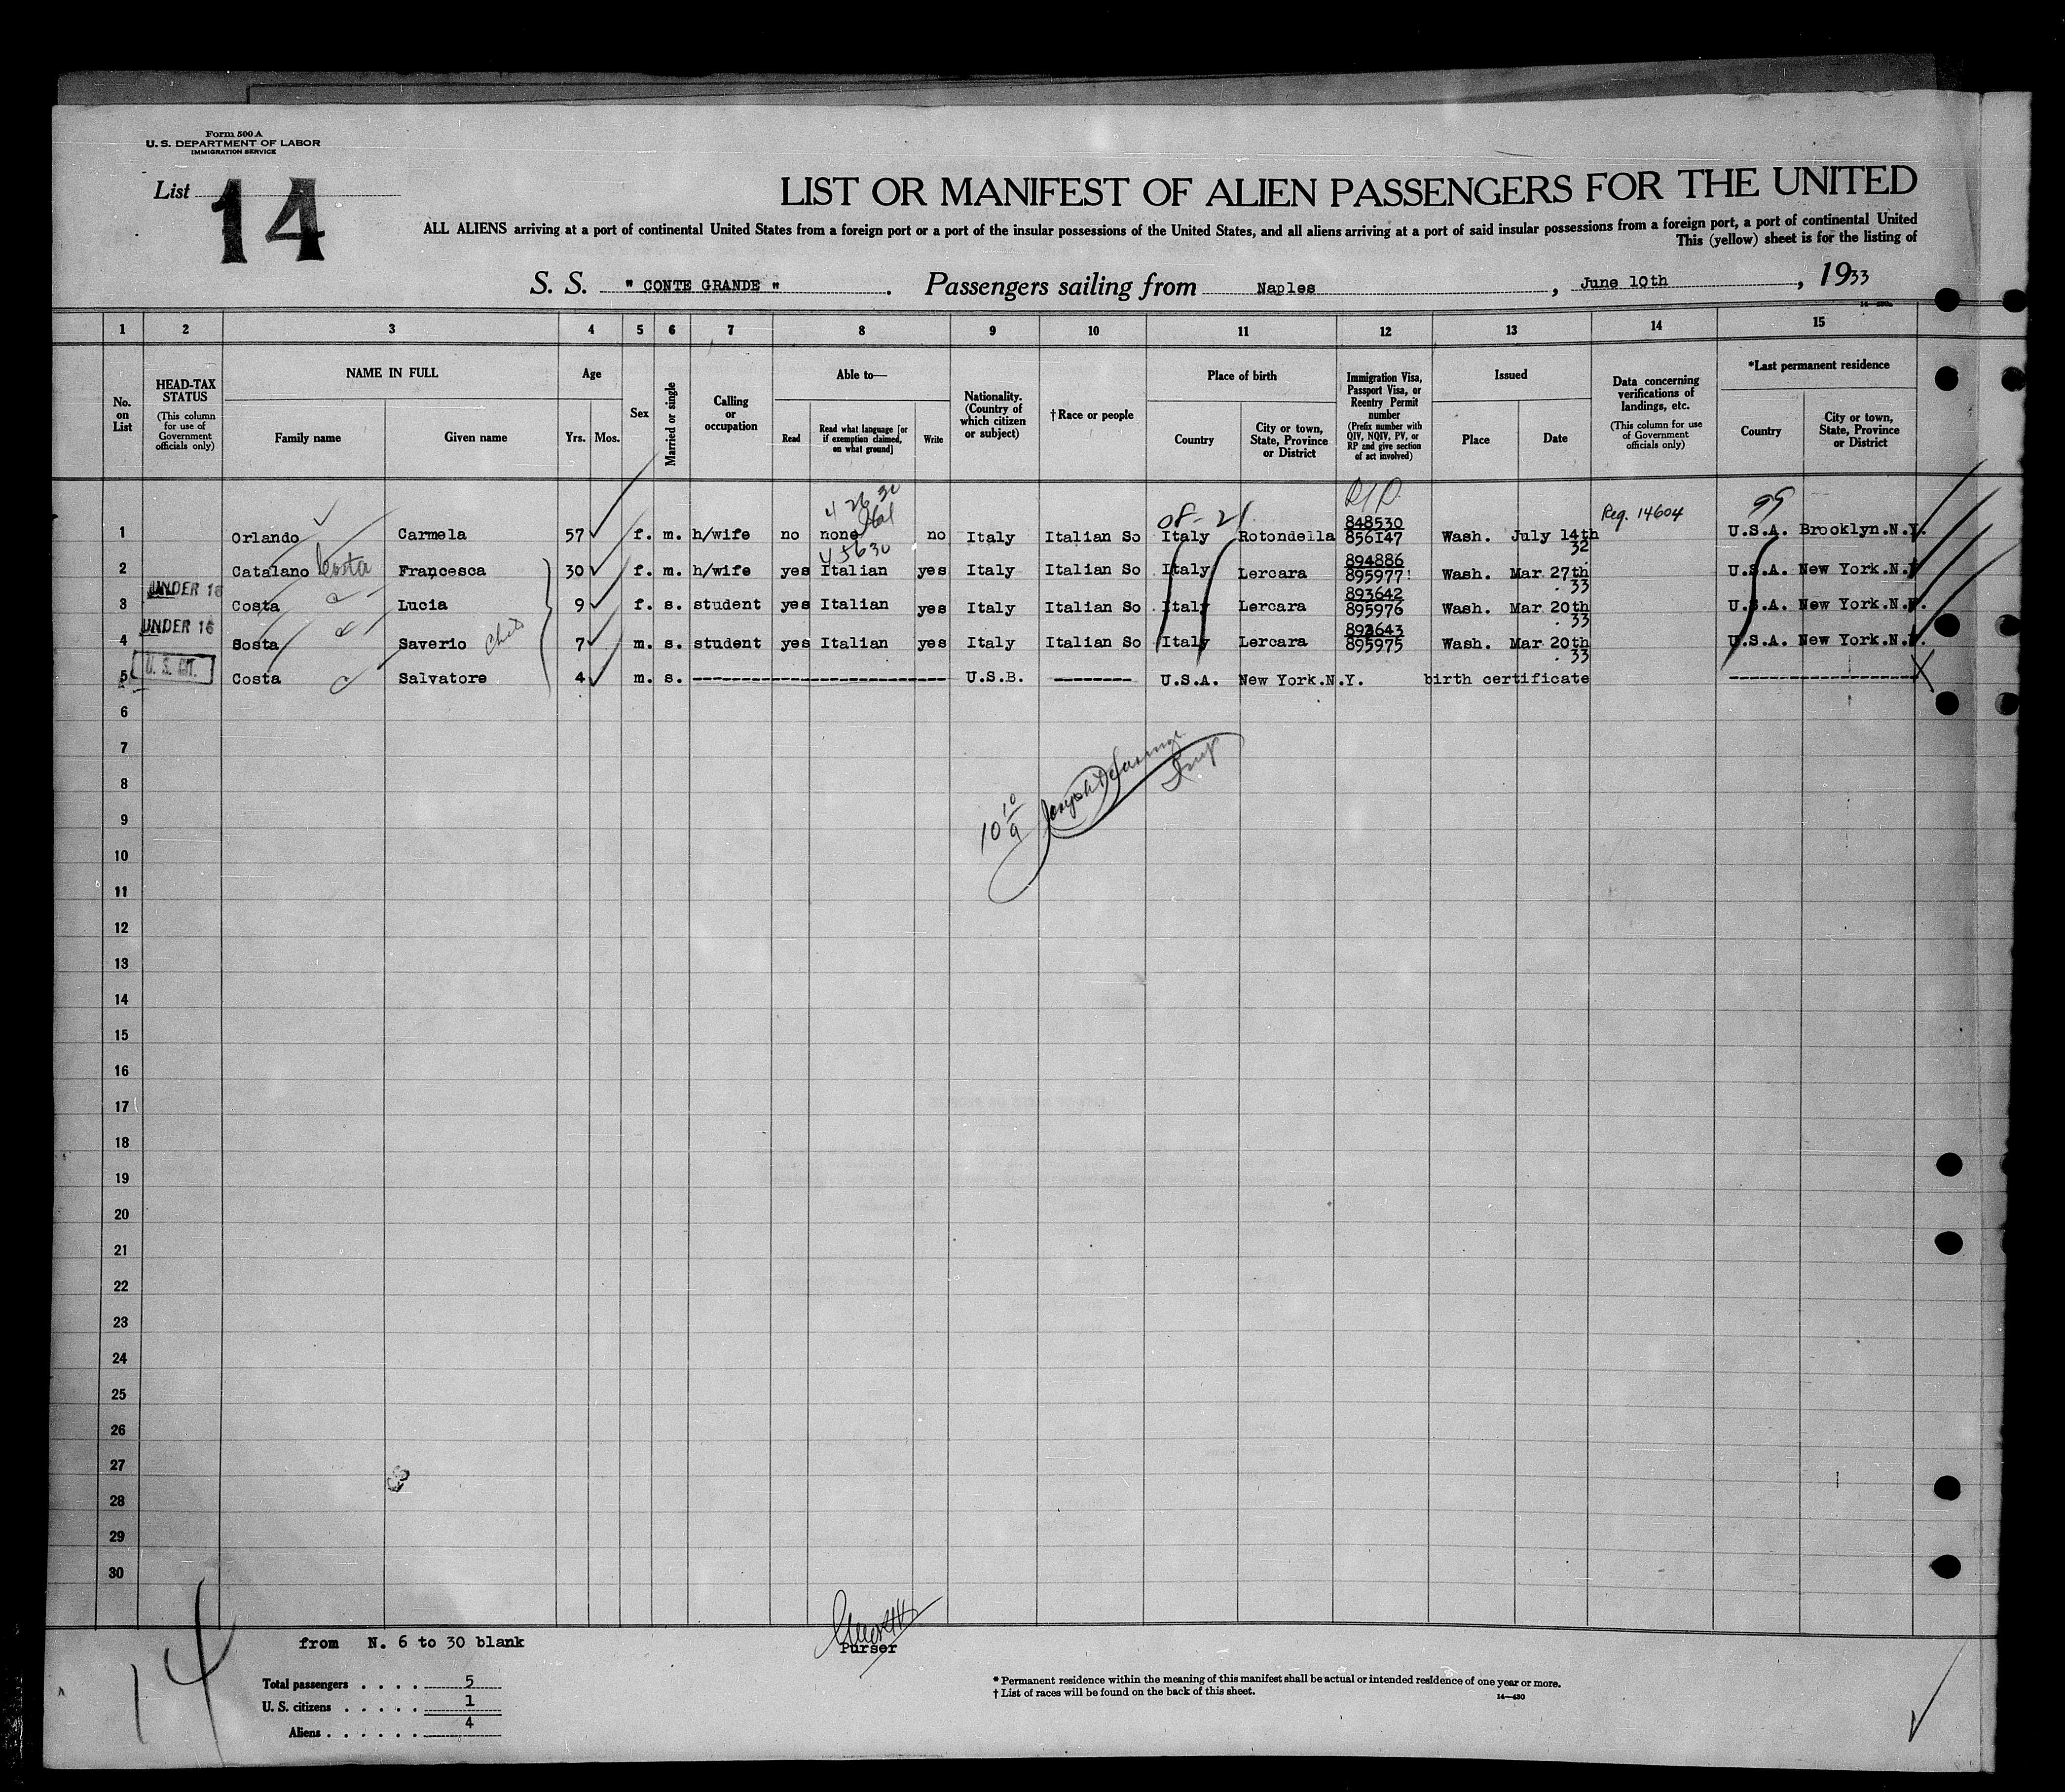 Form 500 A
U. S. DEPARTMENT OF LABOR
IMMIGRATION SERVICE
List 14
LIST OR MANIFEST OF ALIEN PASSENGERS FOR THE UNITED
ALL ALIENS arriving at a port of continental United States from a foreign port or a port of the insular possessions of the United States, and all aliens arriving at a port of said insular possessions from a foreign port, a port of continental United
This (yellow) sheet is for the listing of
S. S. " CONTE GRANDE " . Passengers sailing from Naples , June 10th , 1933
1 2 3 4 5 6 7 8 9 10 11 12 13 14 15
No. on List
HEAD-TAX STATUS
(This column for use of Government officials only)
NAME IN FULL
Family name
Given name
Age
Yrs. Mos.
Sex
Married or single
Calling or occupation
Able to—
Read
Read what language [or if exemption claimed, on what ground]
Write
Nationality. (Country of which citizen or subject)
†Race or people
Place of birth
Country
City or town, State, Province or District
Immigration Visa, Passport Visa, or Reentry Permit number
(Prefix number with QIV, NQIV, PV, or RP and give section of act involved)
Issued
Place
Date
Data concerning verifications of landings, etc.
(This column for use of Government officials only)
*Last permanent residence
Country
City or town, State, Province or District
4 26 30
Ital
08-21
R/P
848530
Reg. 14604
99
1 Orlando Carmela 57 f. m. h/wife no none no Italy Italian So Italy Rotondella 856147 Wash. July 14th 32 U.S.A. Brooklyn.N.Y.
4 5630
894886
2 Catalano Costa Francesca 30 f. m. h/wife yes Italian yes Italy Italian So Italy Lercara 895977 Wash. Mar 27th 33 U.S.A. New York.N.Y.
UNDER 16
893642
3 Costa Lucia 9 f. s. student yes Italian yes Italy Italian So Italy Lercara 895976 Wash. Mar 20th 33 U.S.A. New York.N.Y.
UNDER 16
893643
4 Sosta Saverio 7 m. s. student yes Italian yes Italy Italian So Italy Lercara 895975 Wash. Mar 20th 33 U.S.A. New York.N.Y.
U. S. CIT.
5 Costa Salvatore 4 m. s. U.S.B. U.S.A. New York.N.Y. birth certificate
6
7
8
9
10
11
12
13
14
15
16
17
18
19
20
21
22
23
24
25
26
27
28
29
30
10 10/9
Insp
from N. 6 to 30 blank
Purser
14
Total passengers . . . . 5
U. S. citizens . . . . . 1
Aliens . . . . . . 4
* Permanent residence within the meaning of this manifest shall be actual or intended residence of one year or more.
† List of races will be found on the back of this sheet.
14—430